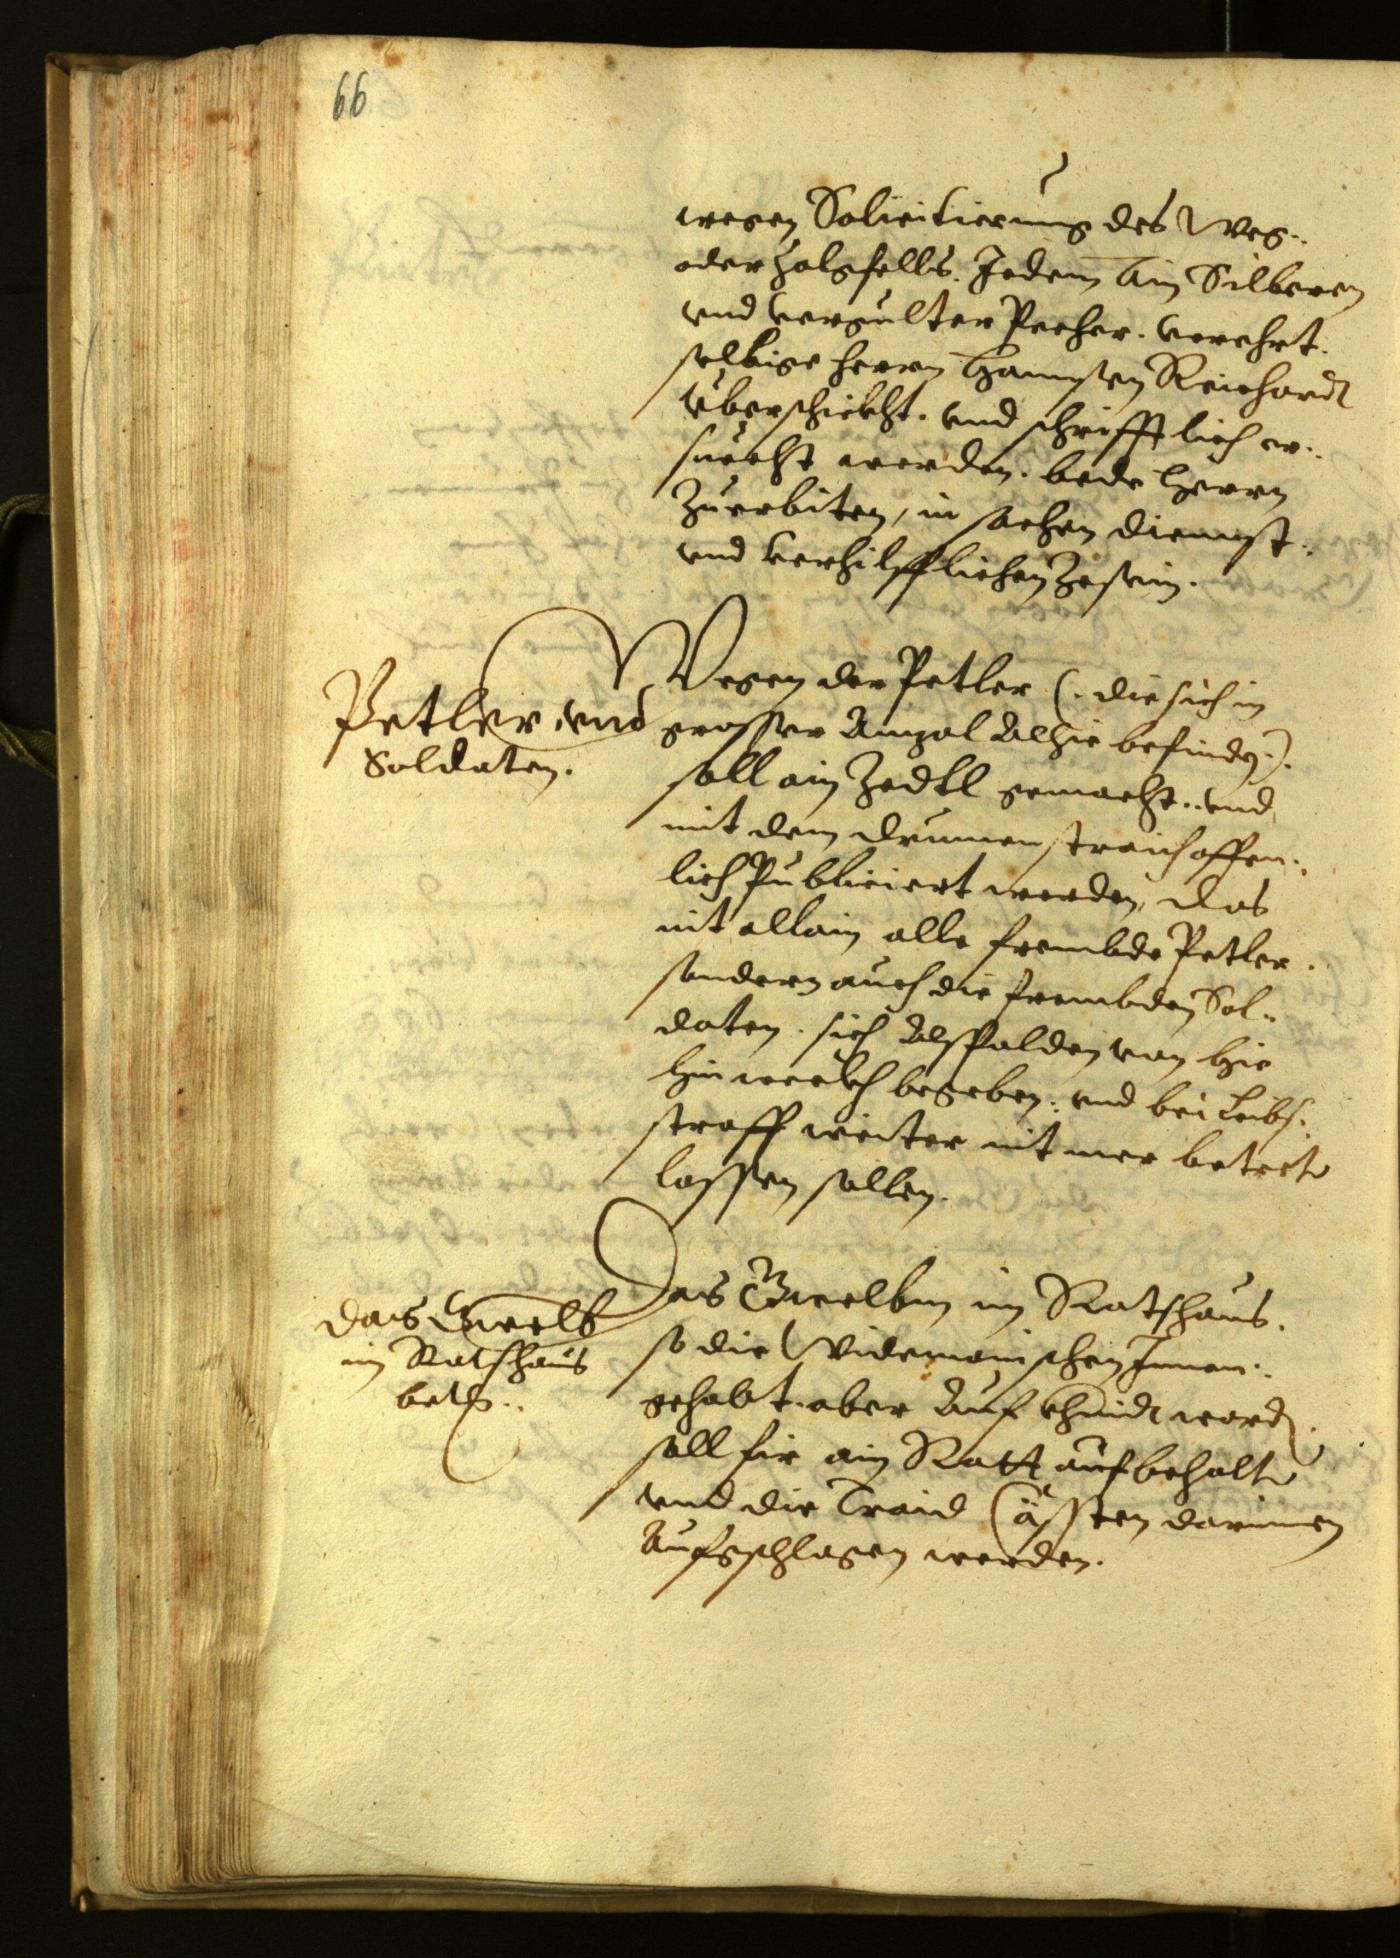 66
wegen Solicitierung des Weg-
oder holzfells. Jedem ain Silberen
und vergulter Pecher. verehrt.
selbige herrn Hannsen Reichardt
überschickht. und schrifftlich er-
suecht werden. bede Herrn
Zuerbiten, in sachen dienst-
und verhilfflichen Zesein.
Petler und
Soldaten.
Wegen der Petler (. die sich in
grosser Anzal Alhie befinden.).
soll ain Zedtl gemacht. und
mit dem drumenstraich offen-
lich Publiciert werden, das
nit allain alle frembde Petler.
sondern auch die frembden Sol-
daten. sich Alsspalden von hie
hinweekh begeben. und bei Leibs-
straff weiter nit mer betrett
lassen sollen.
das Gwelb
im Rathshaus
betr.
Das Gwelben im Rathshaus.
so die Widemanischen Innen-
gehabt. aber Aufkhindt word.
soll für ain Statt aufbehalt
und die Traid Cässten darinnen
Aufgschlagen werden.